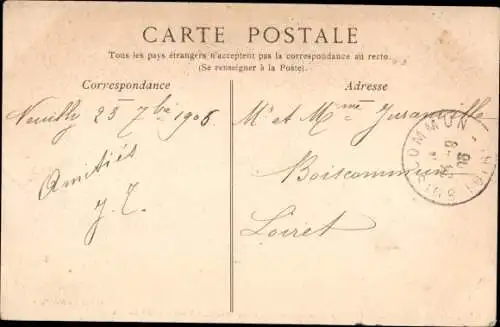 CARTE POSTALE
Tous les pays étrangers n'acceptent pas la correspondance au recto.
(Se renseigner à la Poste).
Correspondance
Adresse
Neuilly 25 7bre 1906
Amitiés
J. T.
Mr et Mme Juranville
Boiscommun
Loiret
BOISCOMMUN
LOIRET